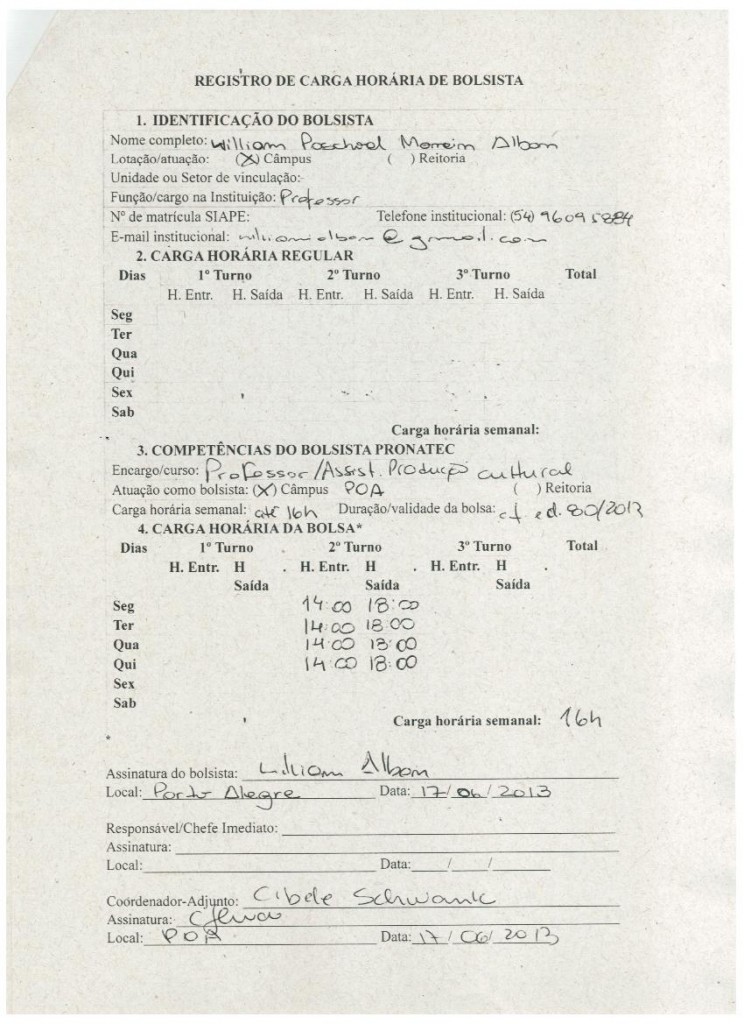 REGISTRO DE CARGA HORÁRIA DE BOLSISTA
1. IDENTIFICAÇÃO DO BOLSISTA
Nome completo: William Paschoal Alban
Lotação/atuação: (X) Câmpus ( ) Reitoria
Unidade ou Setor de vinculação:
Função/cargo na Instituição: Professor
Nº de matrícula SIAPE: Telefone institucional: (54) 96095884
E-mail institucional: @gmail.com
2. CARGA HORÁRIA REGULAR
Dias 1º Turno 2º Turno 3º Turno Total
H. Entr. H. Saída H. Entr. H. Saída H. Entr. H. Saída
Seg
Ter
Qua
Qui
Sex
Sab
Carga horária semanal:
3. COMPETÊNCIAS DO BOLSISTA PRONATEC
Encargo/curso: Professor/Assist. Produção cultural
Atuação como bolsista: (X) Câmpus POA ( ) Reitoria
Carga horária semanal: até 16h Duração/validade da bolsa: cf. ed. 80/2013
4. CARGA HORÁRIA DA BOLSA*
Dias 1º Turno 2º Turno 3º Turno Total
H. Entr. H . H. Entr. H . H. Entr. H .
Saída Saída Saída
Seg 14:00 18:00
Ter 14:00 18:00
Qua 14:00 18:00
Qui 14:00 18:00
Sex
Sab
Carga horária semanal: 16h
*
Assinatura do bolsista: William Alban
Local: Porto Alegre Data: 17/06/2013
Responsável/Chefe Imediato:
Assinatura:
Local: Data: / /
Coordenador-Adjunto: Cibele Schwanke
Assinatura:
Local: POA Data: 17/06/2013